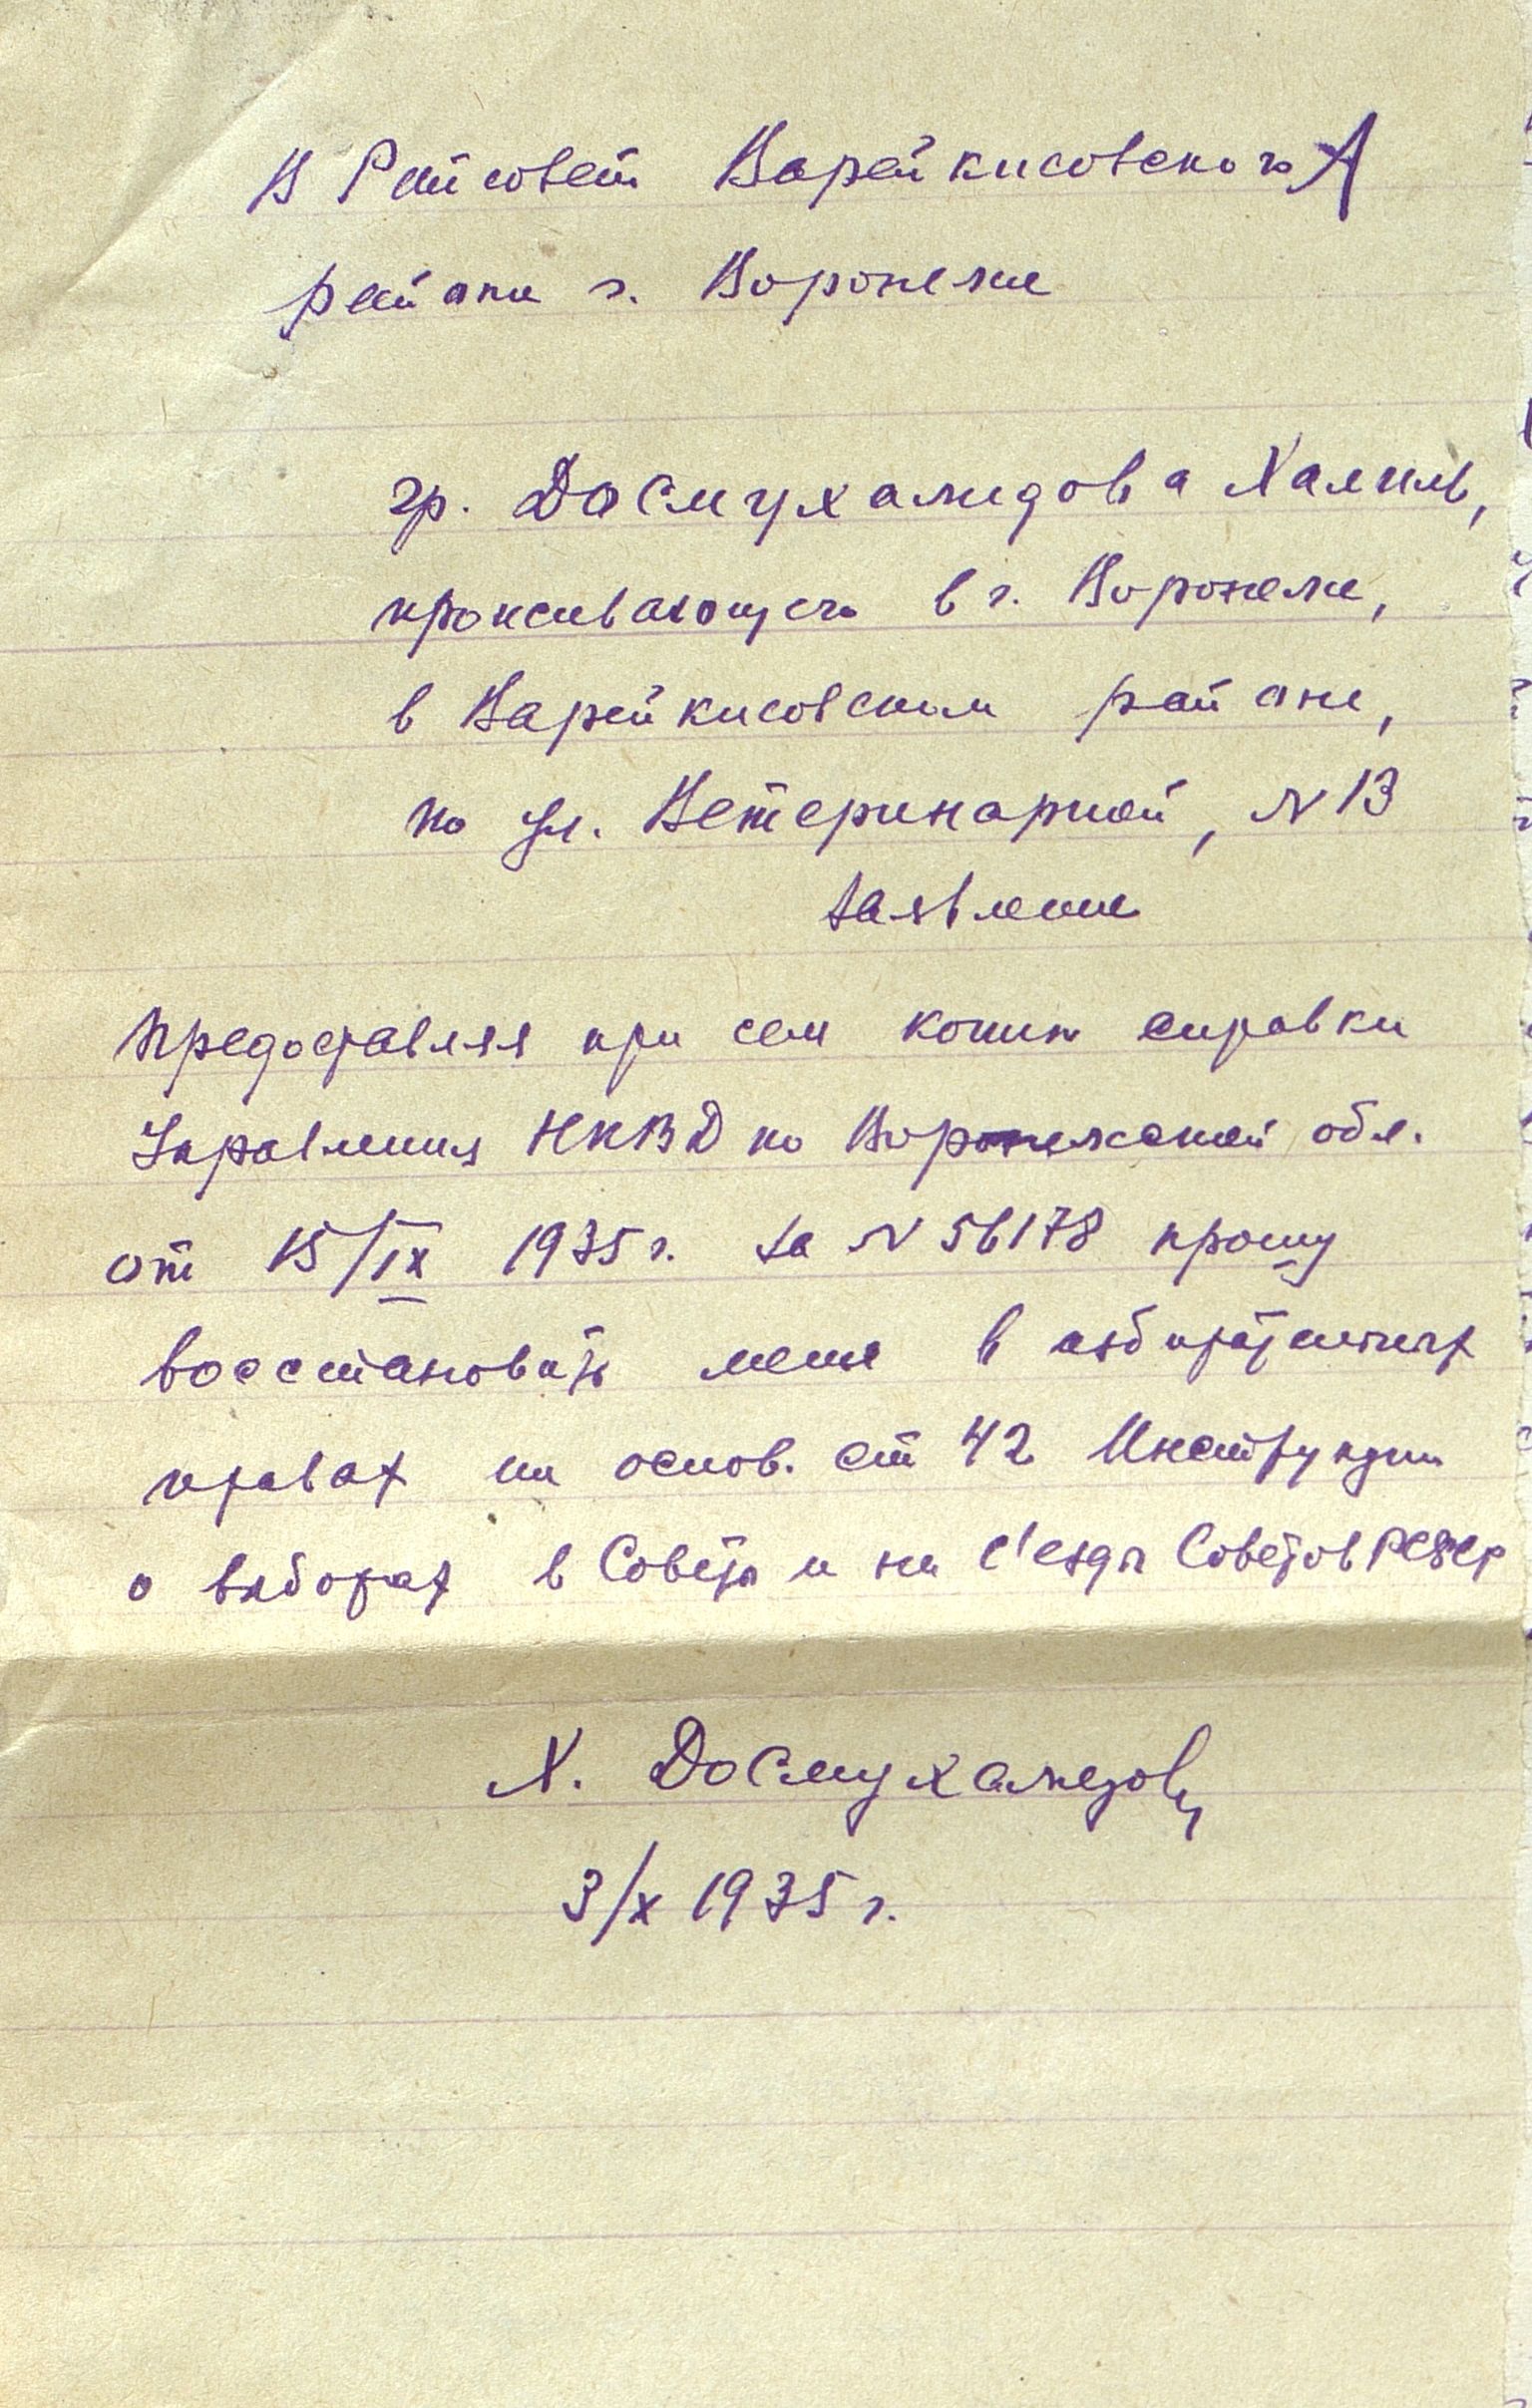 В Райсовет Варейкисовского
района г. Воронежа
гр. Досмухамедова Халила,
проживающего в г. Воронеже,
в Варейкисовском районе,
по ул. Ветеринарной, N 13
Заявление
Предоставляя при сем копию справки
Управления НКВД по Воронежской обл.
от 15/IX 1935 г. за N 56178 прошу
восстановить меня в избирательных
правах на основ. ст 42 Инструкции
о выборах в Советы и на с'езды Советов РСФСР
Х. Досмухамедов
3/X 1935 г.